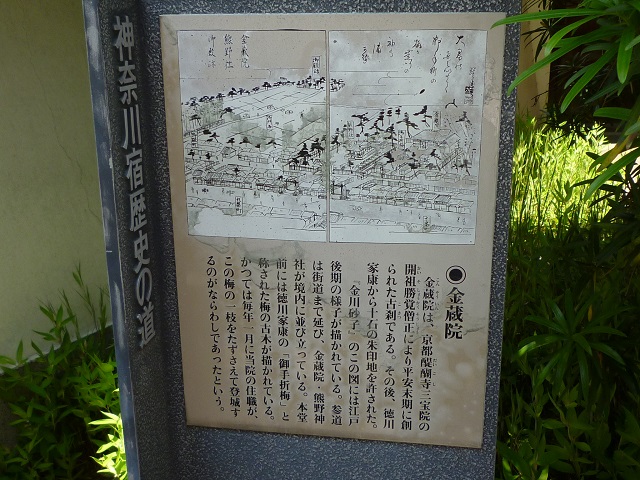 神奈川宿歴史の道
金蔵院
熊野社
◉金蔵院
金蔵院は、京都醍醐寺三宝院の
開祖勝覚僧正により平安末期に創
られた古刹である。その後、徳川
家康から十石の朱印地を許された。
『金川砂子』のこの図には江戸
後期の様子が描かれている。参道
は街道まで延び、金蔵院・熊野神
社が境内に並び立っている。本堂
前には徳川家康の「御手折梅」と
称された梅の古木が描かれている。
かつては毎年一月に当院の住職が、
この梅の一枝をたずさえて登城す
るのがならわしであったという。